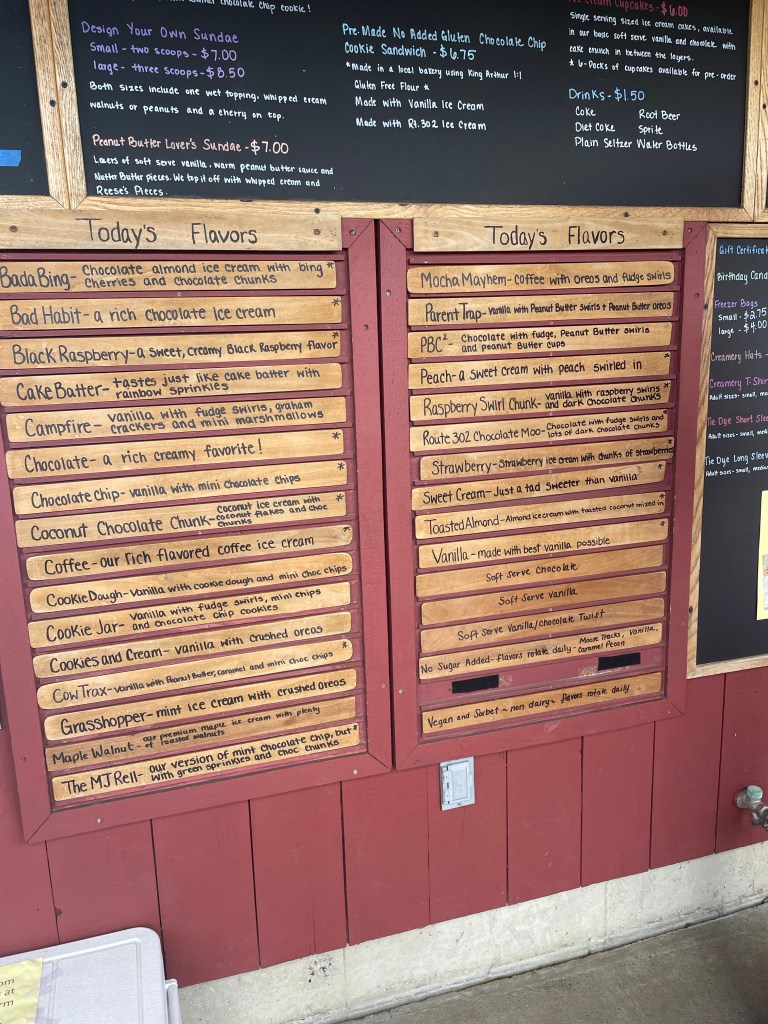 chocolate chip cookie!
Design Your Own Sundae
Small - two scoops - $7.00
large - three scoops - $8.50
Both sizes include one wet topping, whipped cream
walnuts or peanuts and a cherry on top.
Peanut Butter Lover's Sundae - $7.00
Layers of soft serve vanilla, warm peanut butter sauce and
Nutter Butter pieces. We top it off with whipped cream and
Reese's Pieces.
Pre-Made No Added Gluten Chocolate Chip
Cookie Sandwich - $6.75
*Made in a local bakery using King Arthur 1:1
Gluten Free Flour *
Made with Vanilla Ice Cream
Made with Rt. 302 Ice Cream
Ice Cream Cupcakes - $6.00
Single serving sized ice cream cakes, available
in our basic soft serve vanilla and chocolate with
cake crunch in between the layers.
* 6-Packs of cupcakes available for pre-order
Drinks - $1.50
Coke Root Beer
Diet Coke Sprite
Plain Seltzer Water Bottles
Today's Flavors
Bada Bing - Chocolate almond ice cream with bing *
cherries and chocolate chunks
Bad Habit - a rich chocolate Ice cream *
Black Raspberry - a sweet, creamy Black Raspberry flavor *
Cake Batter - tastes just like cake batter with
rainbow sprinkles
Campfire - vanilla with fudge swirls, graham
crackers and mini marshmallows
Chocolate - a rich creamy favorite! *
Chocolate Chip - vanilla with mini chocolate chips *
Coconut Chocolate Chunk - Coconut Ice cream with *
coconut flakes and choc
chunks
Coffee - our rich flavored coffee ice cream *
Cookie Dough - Vanilla with cookie dough and mini choc chips
Cookie Jar - vanilla with fudge swirls, mini chips
and chocolate chip cookies
Cookies and Cream - vanilla with crushed oreos
Cow Trax - vanilla with Peanut Butter, caramel and mini choc chips *
Grasshopper - mint ice cream with crushed oreos
Maple Walnut - our premium maple ice cream with plenty
of roasted walnuts
The MJ Rell - our version of mint chocolate chip, but *
with green sprinkles and choc chunks
Today's Flavors
Mocha Mayhem - coffee with oreos and fudge swirls
Parent Trap - vanilla with Peanut Butter swirls + Peanut Butter oreos
PBC² - Chocolate with fudge, Peanut Butter swirls
and peanut Butter cups
Peach - a sweet cream with peach swirled in *
Raspberry Swirl Chunk - vanilla with raspberry swirls *
and dark chocolate chunks
Route 302 Chocolate Moo - Chocolate with fudge swirls and *
lots of dark chocolate chunks
Strawberry - Strawberry ice cream with chunks of strawberries
Sweet Cream - Just a tad sweeter than vanilla *
Toasted Almond - Almond ice cream with toasted coconut mixed in *
Vanilla - made with best vanilla possible *
Soft Serve Chocolate
Soft Serve Vanilla
Soft Serve Vanilla/Chocolate Twist
No Sugar Added - flavors rotate daily - Moose Tracks, Vanilla,
Caramel Pecan
Vegan and Sorbet ~ non dairy ~ flavors rotate daily
Gift Certificat
Birthday Cand
Freezer Bags
Small - $2.75
large - $4.00
Creamery Hats -
Creamery T-Shir
Adult sizes - small, me
Tie Dye Short Slee
Adult sizes - small, med
Tie Dye Long Sleev
Adult sizes - small, mediu